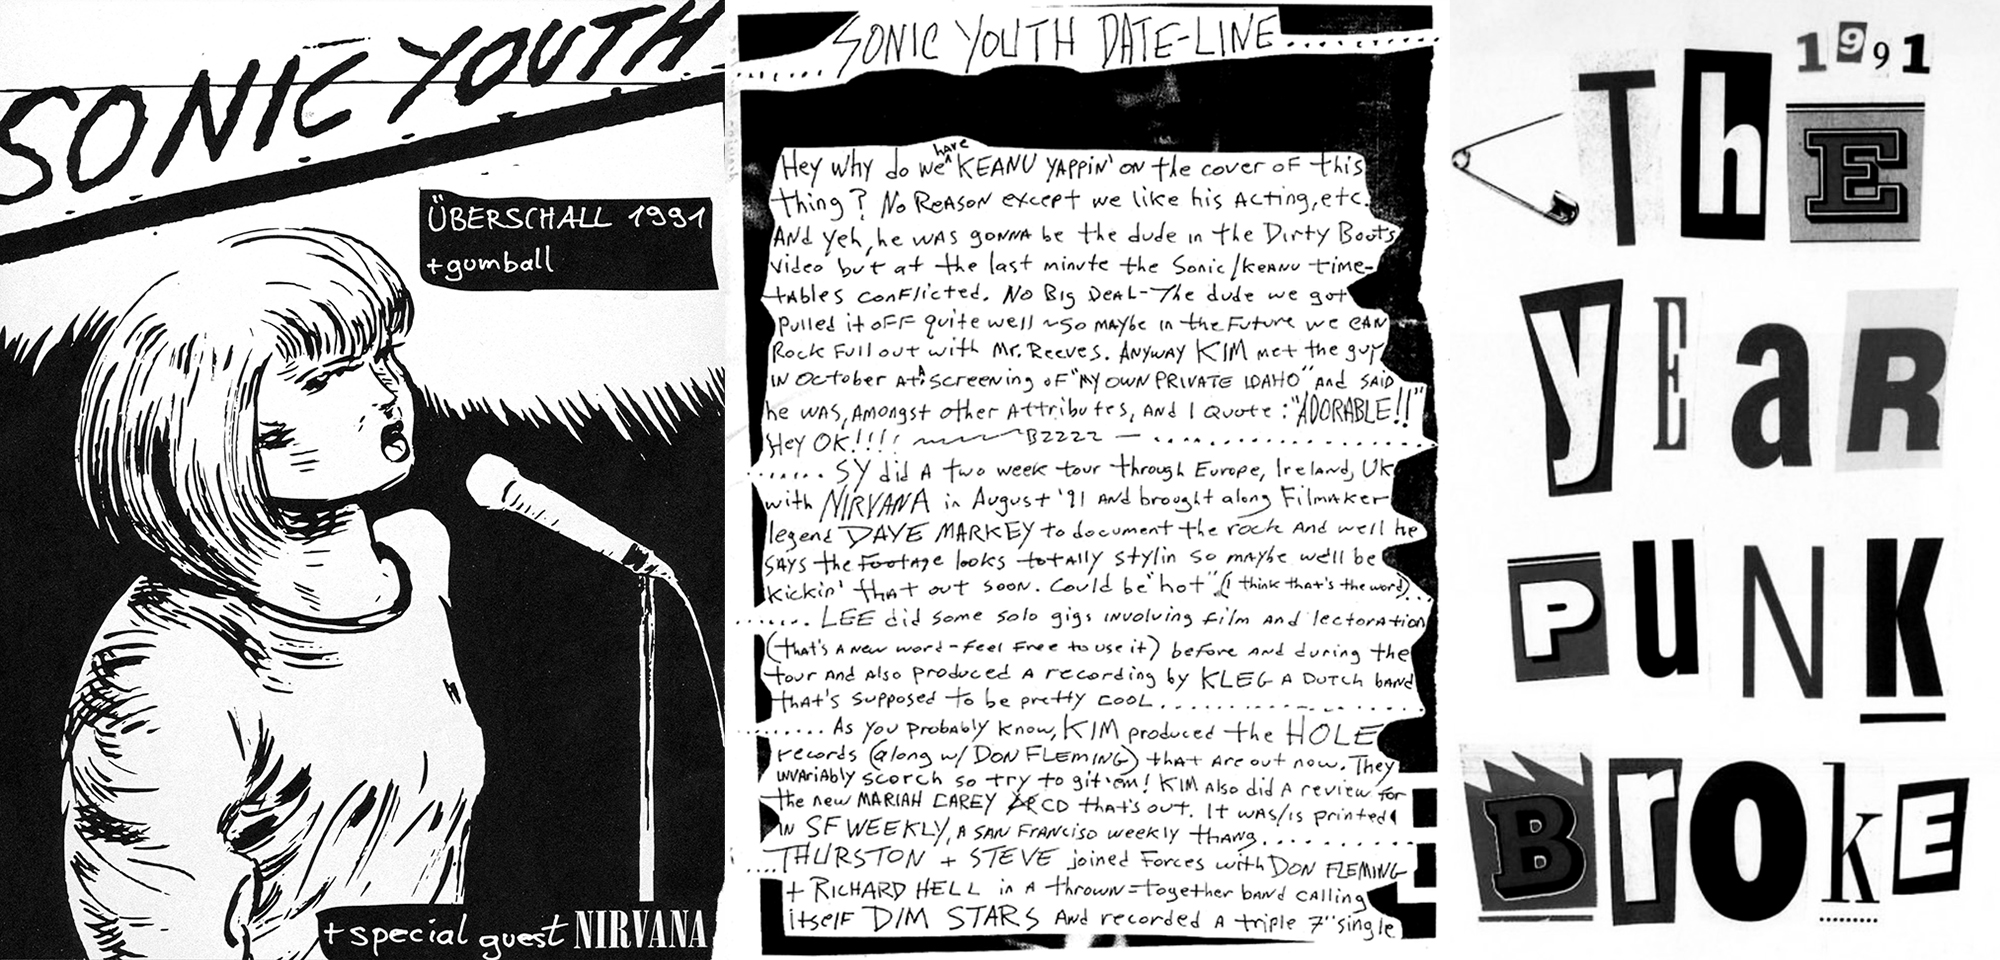 SONIC YOUTH
ÜBERSCHALL 1991
+gumball
+special guest NIRVANA
SONIC YOUTH DATE-LINE
Hey why do we have KEANU YAPPIN' on the cover of this
thing? No REASON except we like his Acting, etc.
AND yeh, he WAS gONNA be the dude in the Dirty Boots
video but at the last minute the Sonic/KEANU time-
tables conflicted. No Big DeAL-The dude we got
pulled it oFF quite well ~ So maybe in the Future we CAN
Rock Full out with Mr. Reeves. Anyway KIM met the guy
IN October At A Screening oF "MY OWN PRIVATE IDAHO" and SAID
he WAS, Amongst other Attributes, AND I Quote: "ADORABLE!!"
Hey OK!!!! BZZZZ —
SY did A two week tour through Europe, Ireland, UK
with NIRVANA in August '91 and brought along Filmaker
legend DAVE MARKEY to document the rock And well he
SAYS the Footage looks totally stylin so maybe we'll be
kickin' that out soon. Could be "hot" (I think that's the word)...
LEE did some solo gigs involving film and lectoration
(that's A new word - feel free to use it) before and during the
tour and Also produced A recording by KLEG A DUTCH band
that's supposed to be pretty cool
As you probably know, KIM produced the HOLE
records (along w/ DON FLEMING) that are out now. They
invariably scorch so try to git 'em! KIM also did A review for
the new MARIAH CAREY CD that's out. It was/is printed
IN SF WEEKLY, A SAN Franciso weekly thang
THURSTON + STEVE joined Forces with DON FLEMING
+ RICHARD HELL in A thrown=together band calling
itself DIM STARS And recorded A triple 7" single
1991
ThE
yEaR
PuNK
BroKE